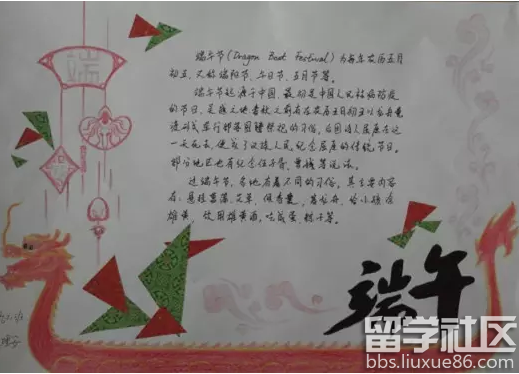 端
端午节(Dragon Boat Festival)为每年农历五月
初五,又称端阳节、午日节、五月节等。
端午节起源于中国,最初是中国人民祛病防疫
的节日,是
习俗,后因诗人屈原在这
一天死去,便成了汉族人民纪念屈原的传统节日。
部分地区也有纪念伍子胥、曹娥等说法。
过端午节,各地有着不同的习俗,其主要内容
有:悬挂菖蒲、艾草,佩香囊,赛龙舟,给小孩涂
雄黄,饮用雄黄酒,吃咸蛋、粽子等。
端午
留学社区
bbs.liuxue86.com